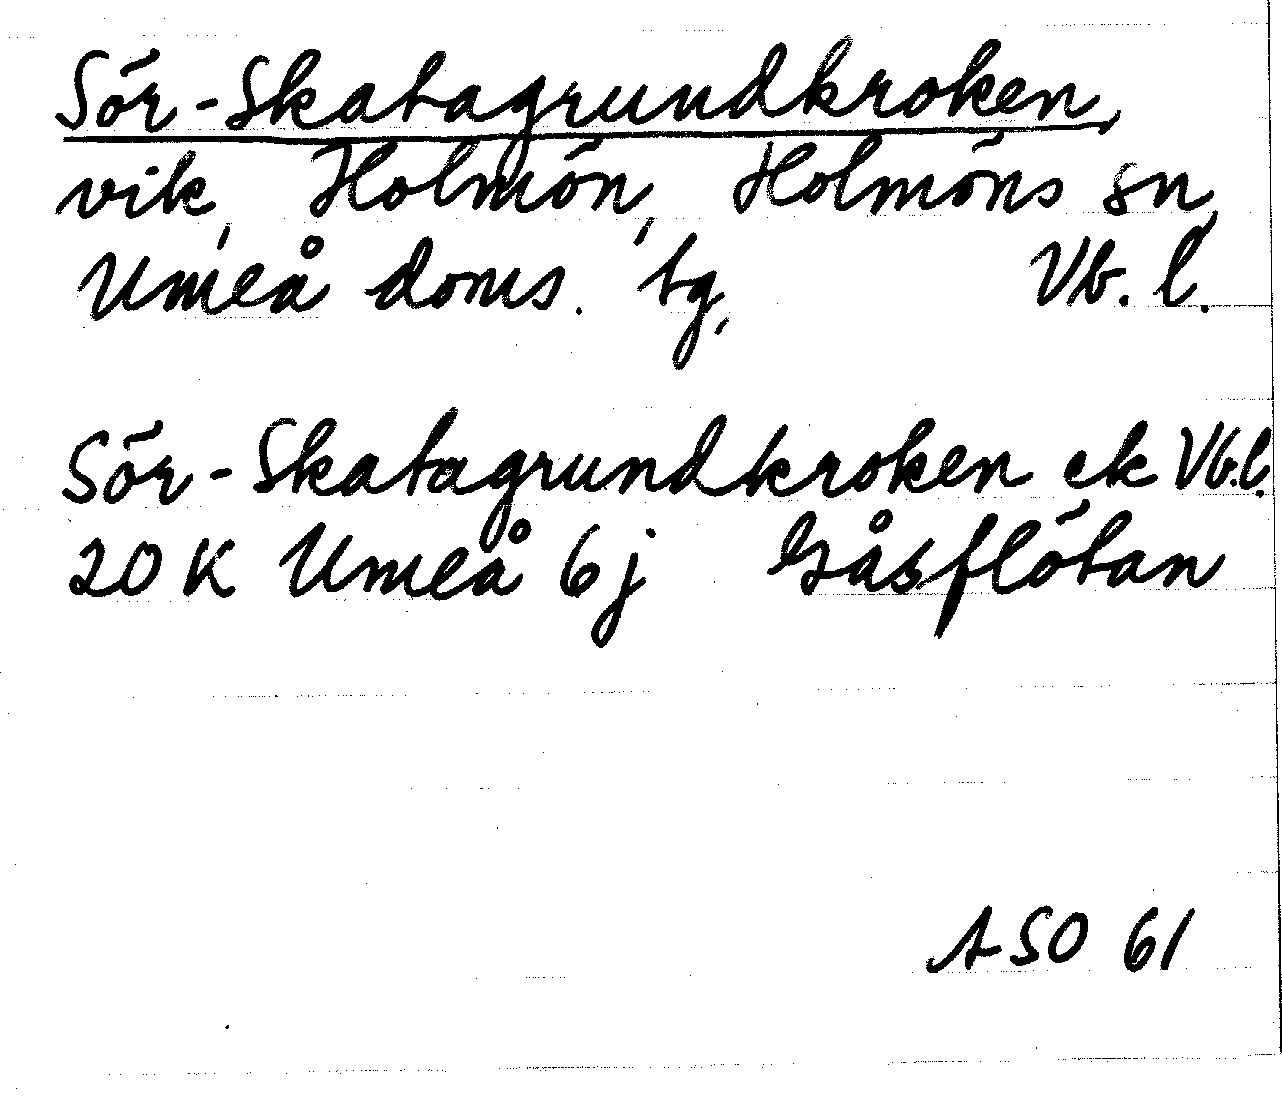 Sör-Skatagrundkroken,
vik, Holmön, Holmöns sn,
Umeå doms. tg, Vb. l.
Sör-Skatagrundkroken ek Vb.l.
20 K Umeå 6j Gåsflötan
ASO 61